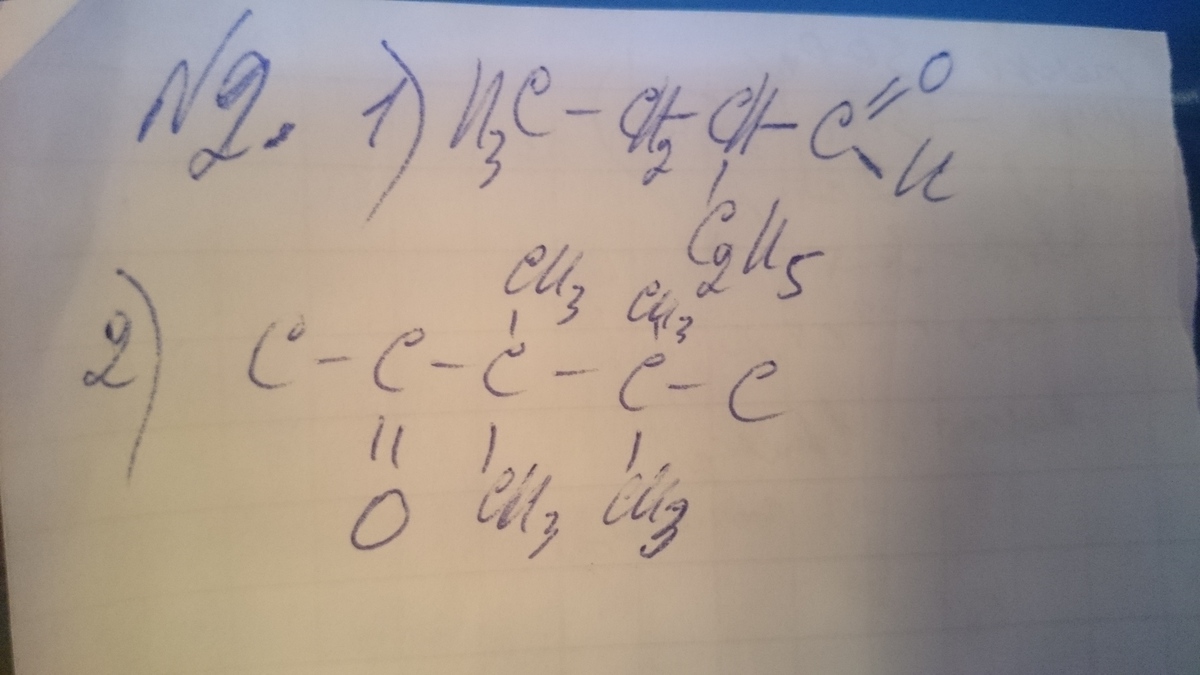 N2. 1) H₃C – CH₂ – CH – C=O
H
C₂H₅
CH₃ CH₃
2) C – C – C – C – C
O CH₃ CH₃